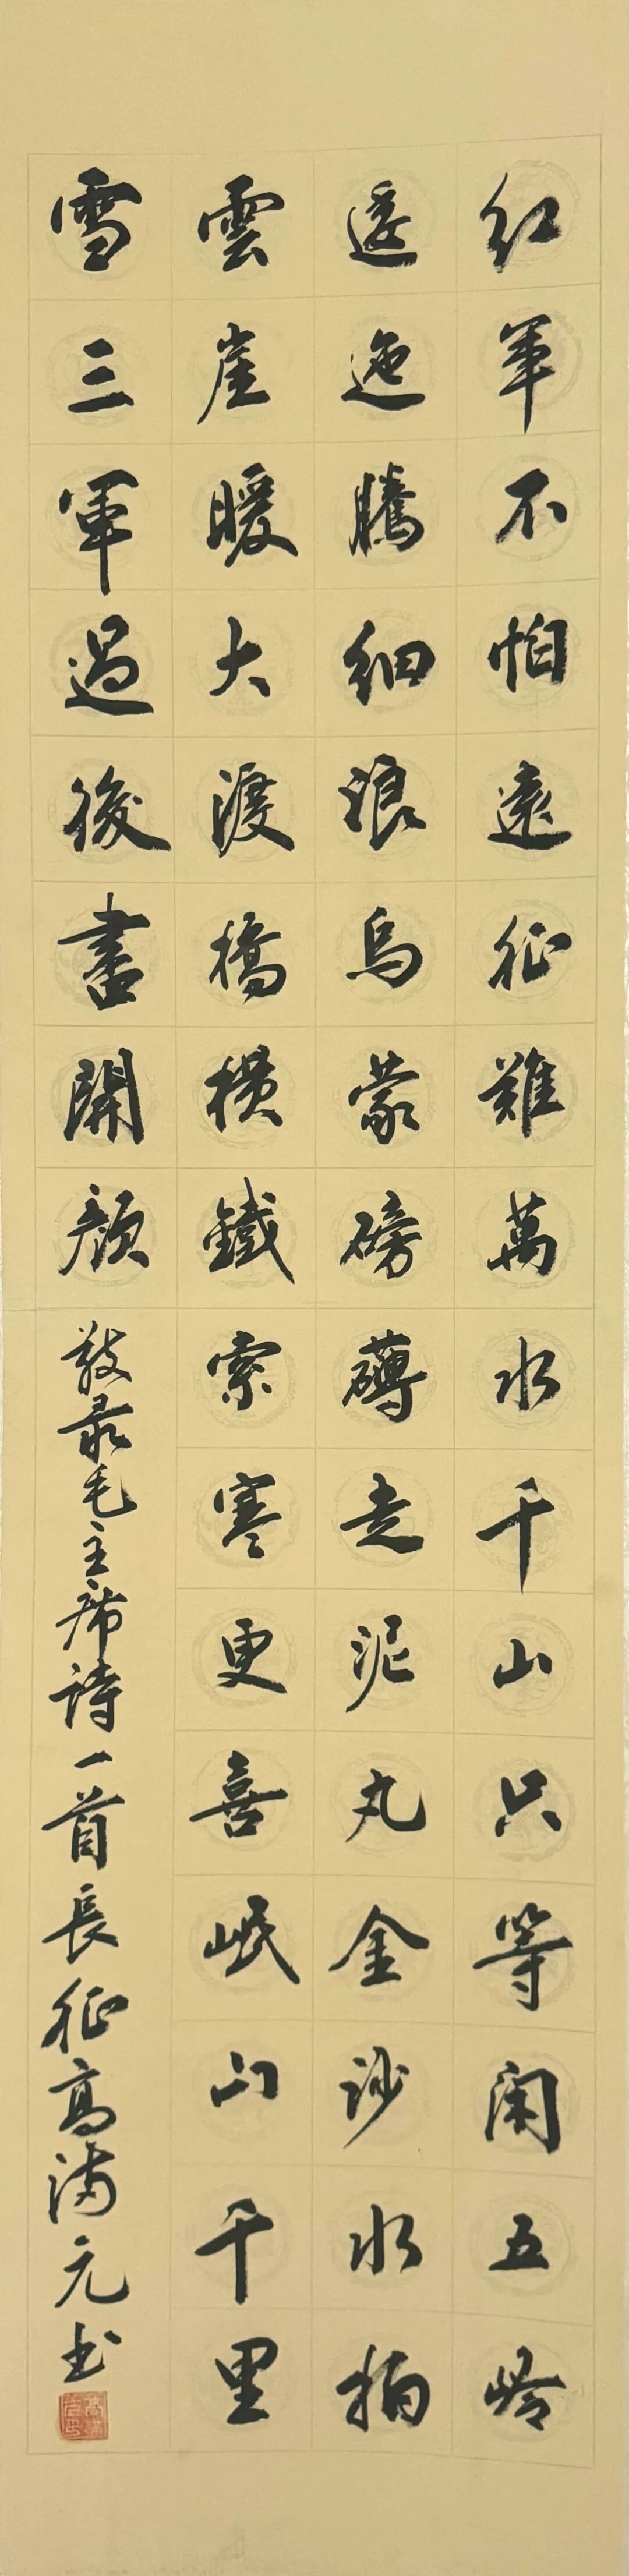 紅軍不怕遠征難萬水千山只等閑五嶺
逶迤騰細浪烏蒙磅礴走泥丸金沙水拍
雲崖暖大渡橋橫鐵索寒更喜岷山千里
雪三軍過後盡開顏
敬录毛主席詩一首長征高满元书